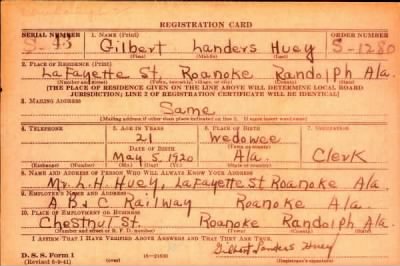 REGISTRATION CARD
SERIAL NUMBER 1. NAME (Print) ORDER NUMBER
S- Gilbert Landers Huey S-1280
(First) (Middle) (Last)
2. PLACE OF RESIDENCE (Print)
LaFayette St. Roanoke Randolph Ala.
[THE PLACE OF RESIDENCE GIVEN ON THE LINE ABOVE WILL DETERMINE LOCAL BOARD
JURISDICTION; LINE 2 OF REGISTRATION CERTIFICATE WILL BE IDENTICAL]
3. MAILING ADDRESS
Same
[Mailing address if other than place indicated on line 2. If same insert word same]
4. TELEPHONE 5. AGE IN YEARS 6. PLACE OF BIRTH 7. OCCUPATION
21 Wedowee
DATE OF BIRTH (Town or county)
May 5, 1920 Ala. Clerk
(Exchange) (Number) (Mo.) (Day) (Yr.) (State or country)
8. NAME AND ADDRESS OF PERSON WHO WILL ALWAYS KNOW YOUR ADDRESS
Mr. L. H. Huey, LaFayette St Roanoke Ala.
9. EMPLOYER'S NAME AND ADDRESS
A. B. & C Railway Roanoke Ala.
10. PLACE OF EMPLOYMENT OR BUSINESS
Chestnut St. Roanoke Randolph Ala.
(Number and street or R. F. D. number) (Town) (County) (State)
I AFFIRM THAT I HAVE VERIFIED ABOVE ANSWERS AND THAT THEY ARE TRUE.
D. S. S. Form 1 Gilbert Landers Huey
(Revised 6-9-41) 16—21630